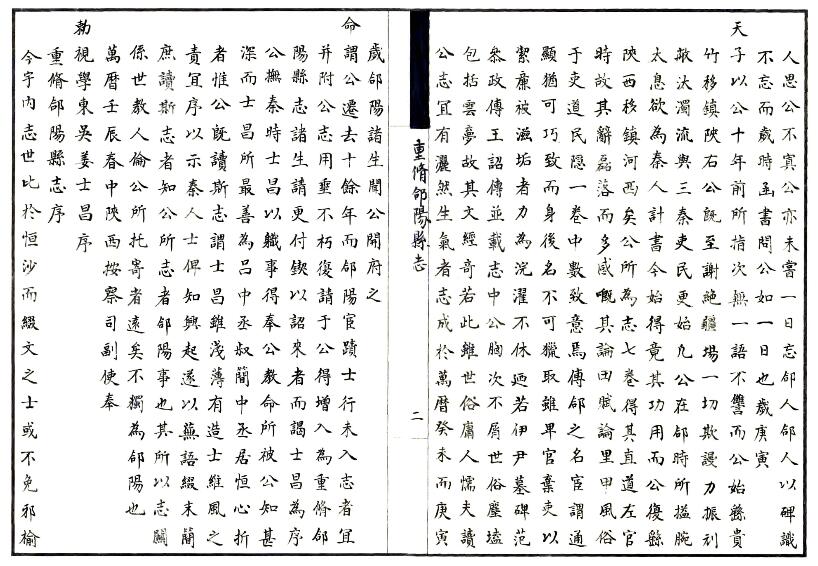 人思公不寘公亦未嘗一日忘郃人郃人以碑識
不忘而歲時函書問公如一日也歲庚寅
天子以公十年前所指次無一語不讐而公始繇貴
竹移鎮陝右公旣至謝絶疆場一切欺謾力振刓
敝汰濁流與三秦吏民更始凢公在郃時所搤腕
太息欲為秦人計書今始得竟其功用而公復繇
陝西移鎮河西矣公所為志七卷得其直道左官
時故其辭磊落而多感嘅其論田賦論里甲風俗
于吏道民隠一卷中數致意焉傳郃之名宦謂通
顯猶可巧致而身後名不可獵取雖卑官棄吏以
絜亷被漁垢者力為浣濯不休廼若伊尹墓碑范
叅政傳王詔傳並載志中公胸次不屑世俗塵壒
包括雲夢故其文經奇若此雖世俗庸人懦夫讀
公志冝有灑然生氣者志成於萬曆癸未而庚寅
重脩郃陽縣志
二
歲郃陽諸生聞公開府之
命謂公遷去十餘年而郃陽宦蹟士行未入志者冝
并附公志用垂不朽復請于公得增入為重脩郃
陽縣志諸生請更付鍥以詔來者而謁士昌為序
公撫秦時士昌以職事得奉公教命所被公知甚
深而士昌所最善為吕中丞叔簡中丞居恒心折
者惟公旣讀斯志謂士昌雖淺薄有造士維風之
責冝序以示秦人士俾知興起遂以蕪語綴末簡
庶讀斯志者知公所志者郃陽事也其所以志關
係世教人倫公所托寄者遠矣不獨為郃陽也
萬曆壬辰春中陝西按察司副使奉
勑視學東吳姜士昌序
重脩郃陽縣志序
今宇内志世比於恒沙而綴文之士或不免邪榆